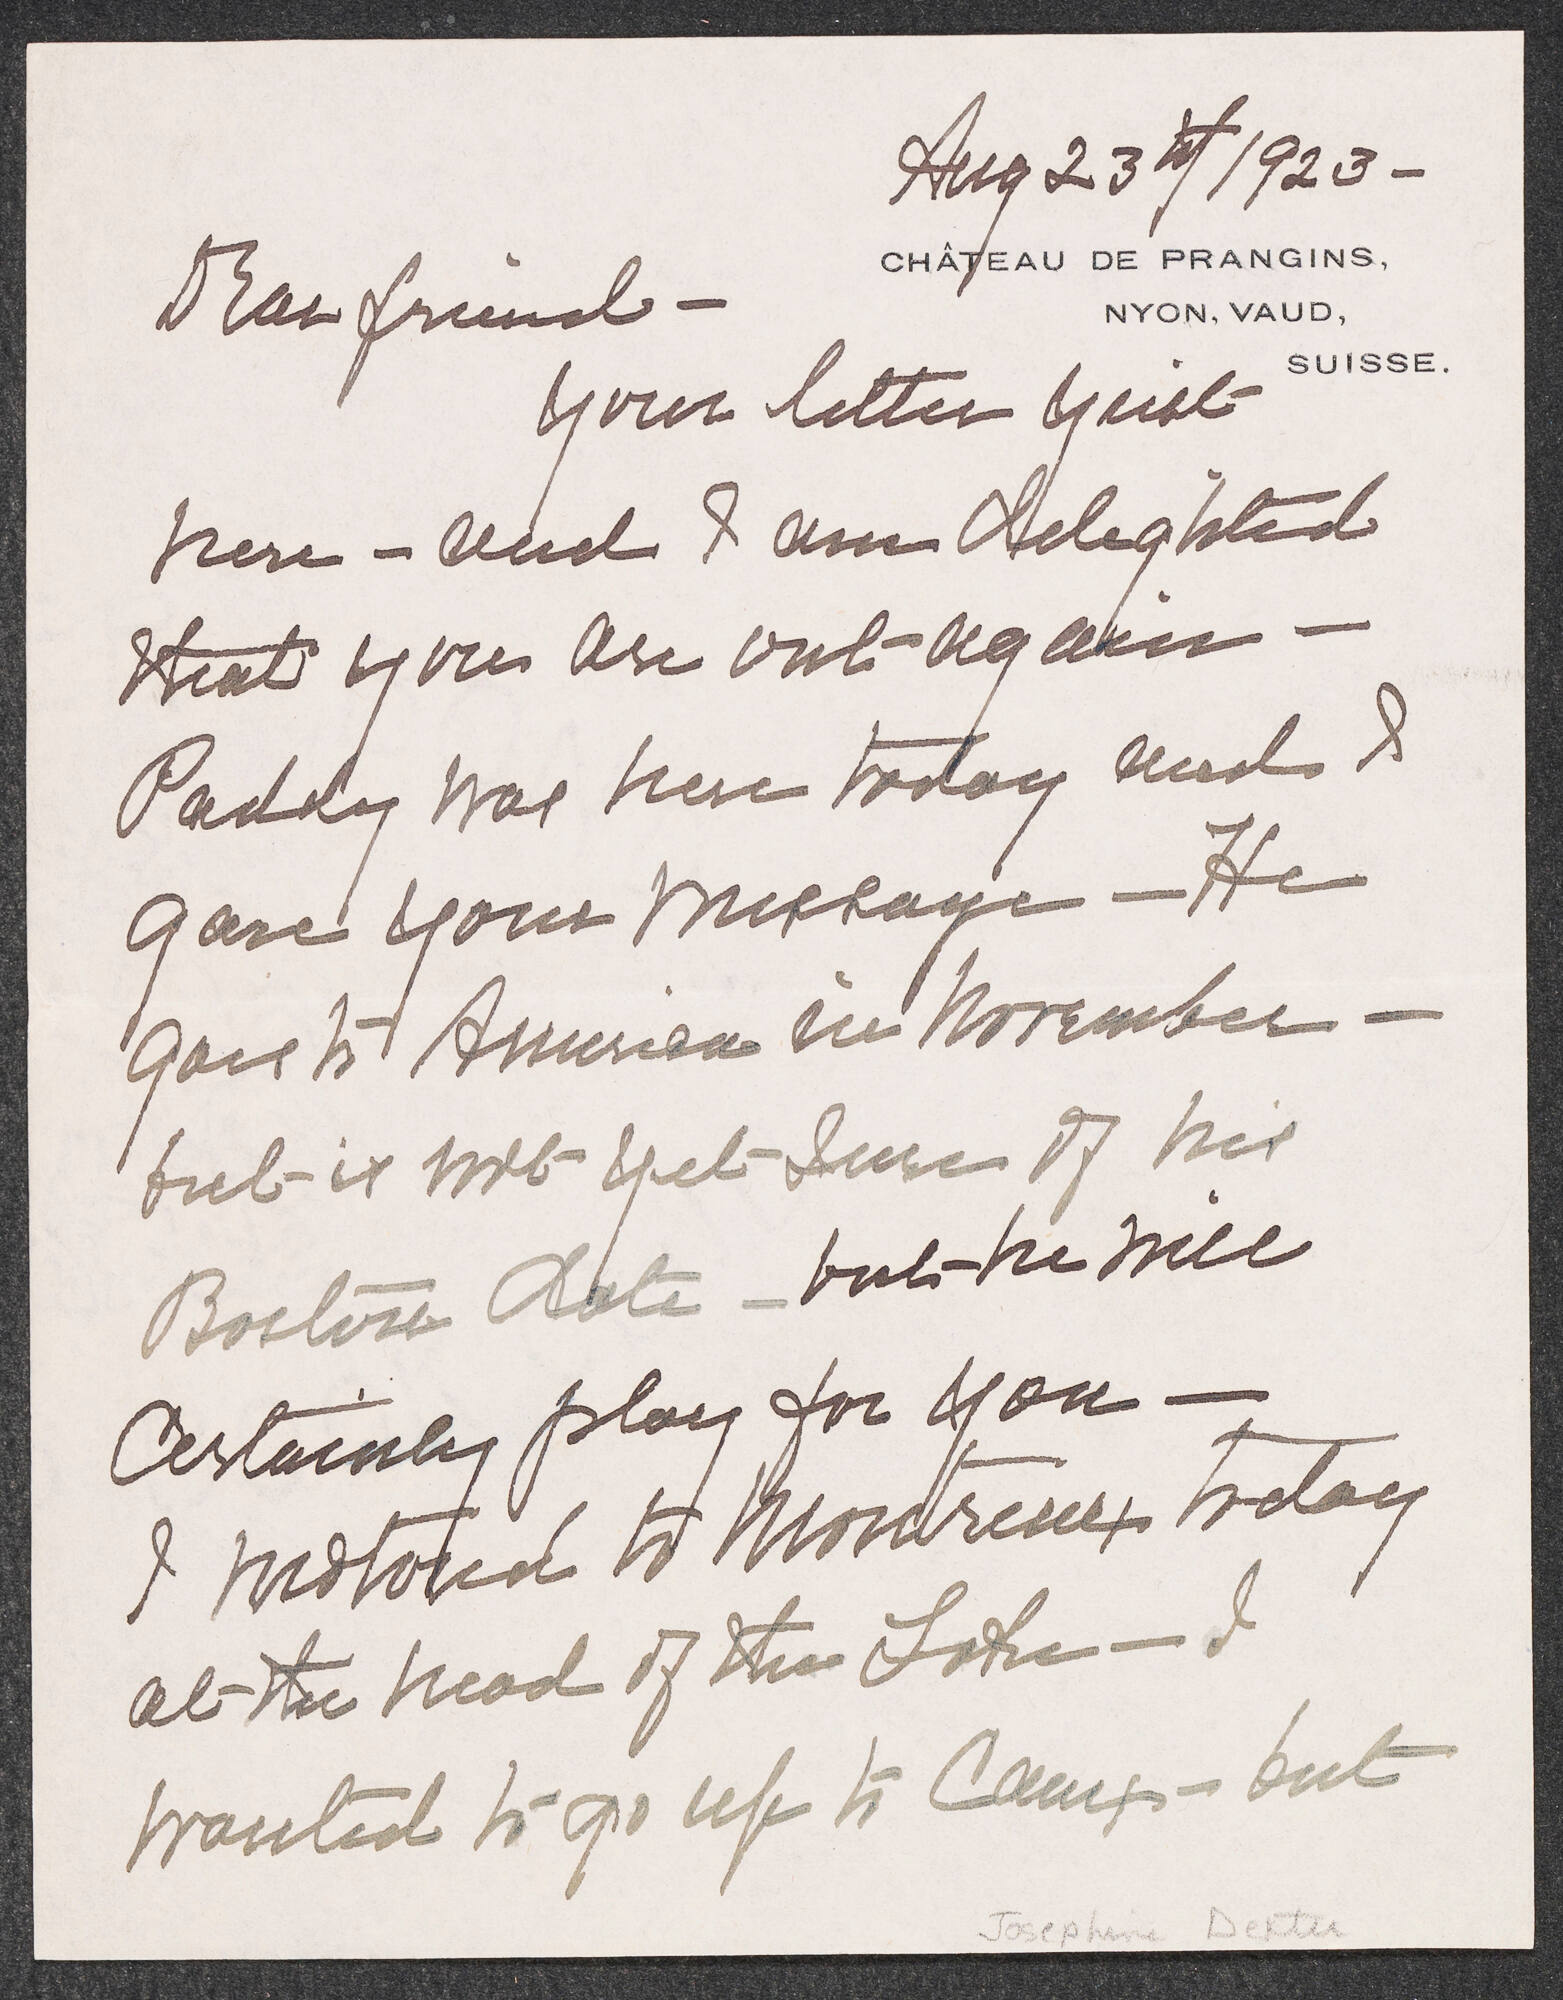 Aug 23rd/1923 –
CHÂTEAU DE PRANGINS,
NYON, VAUD,
SUISSE.
Dear friend –
Your letter just
here – and I am delighted
that you are out again –
Paddy was here today and I
gave your message – He
goes to America in November –
but is not yet sure of his
Boston date – but he will
certainly play for you –
I motored to Montreux today
at the head of the Lake – I
wanted to go up to Caux – but
Josephine Dexter